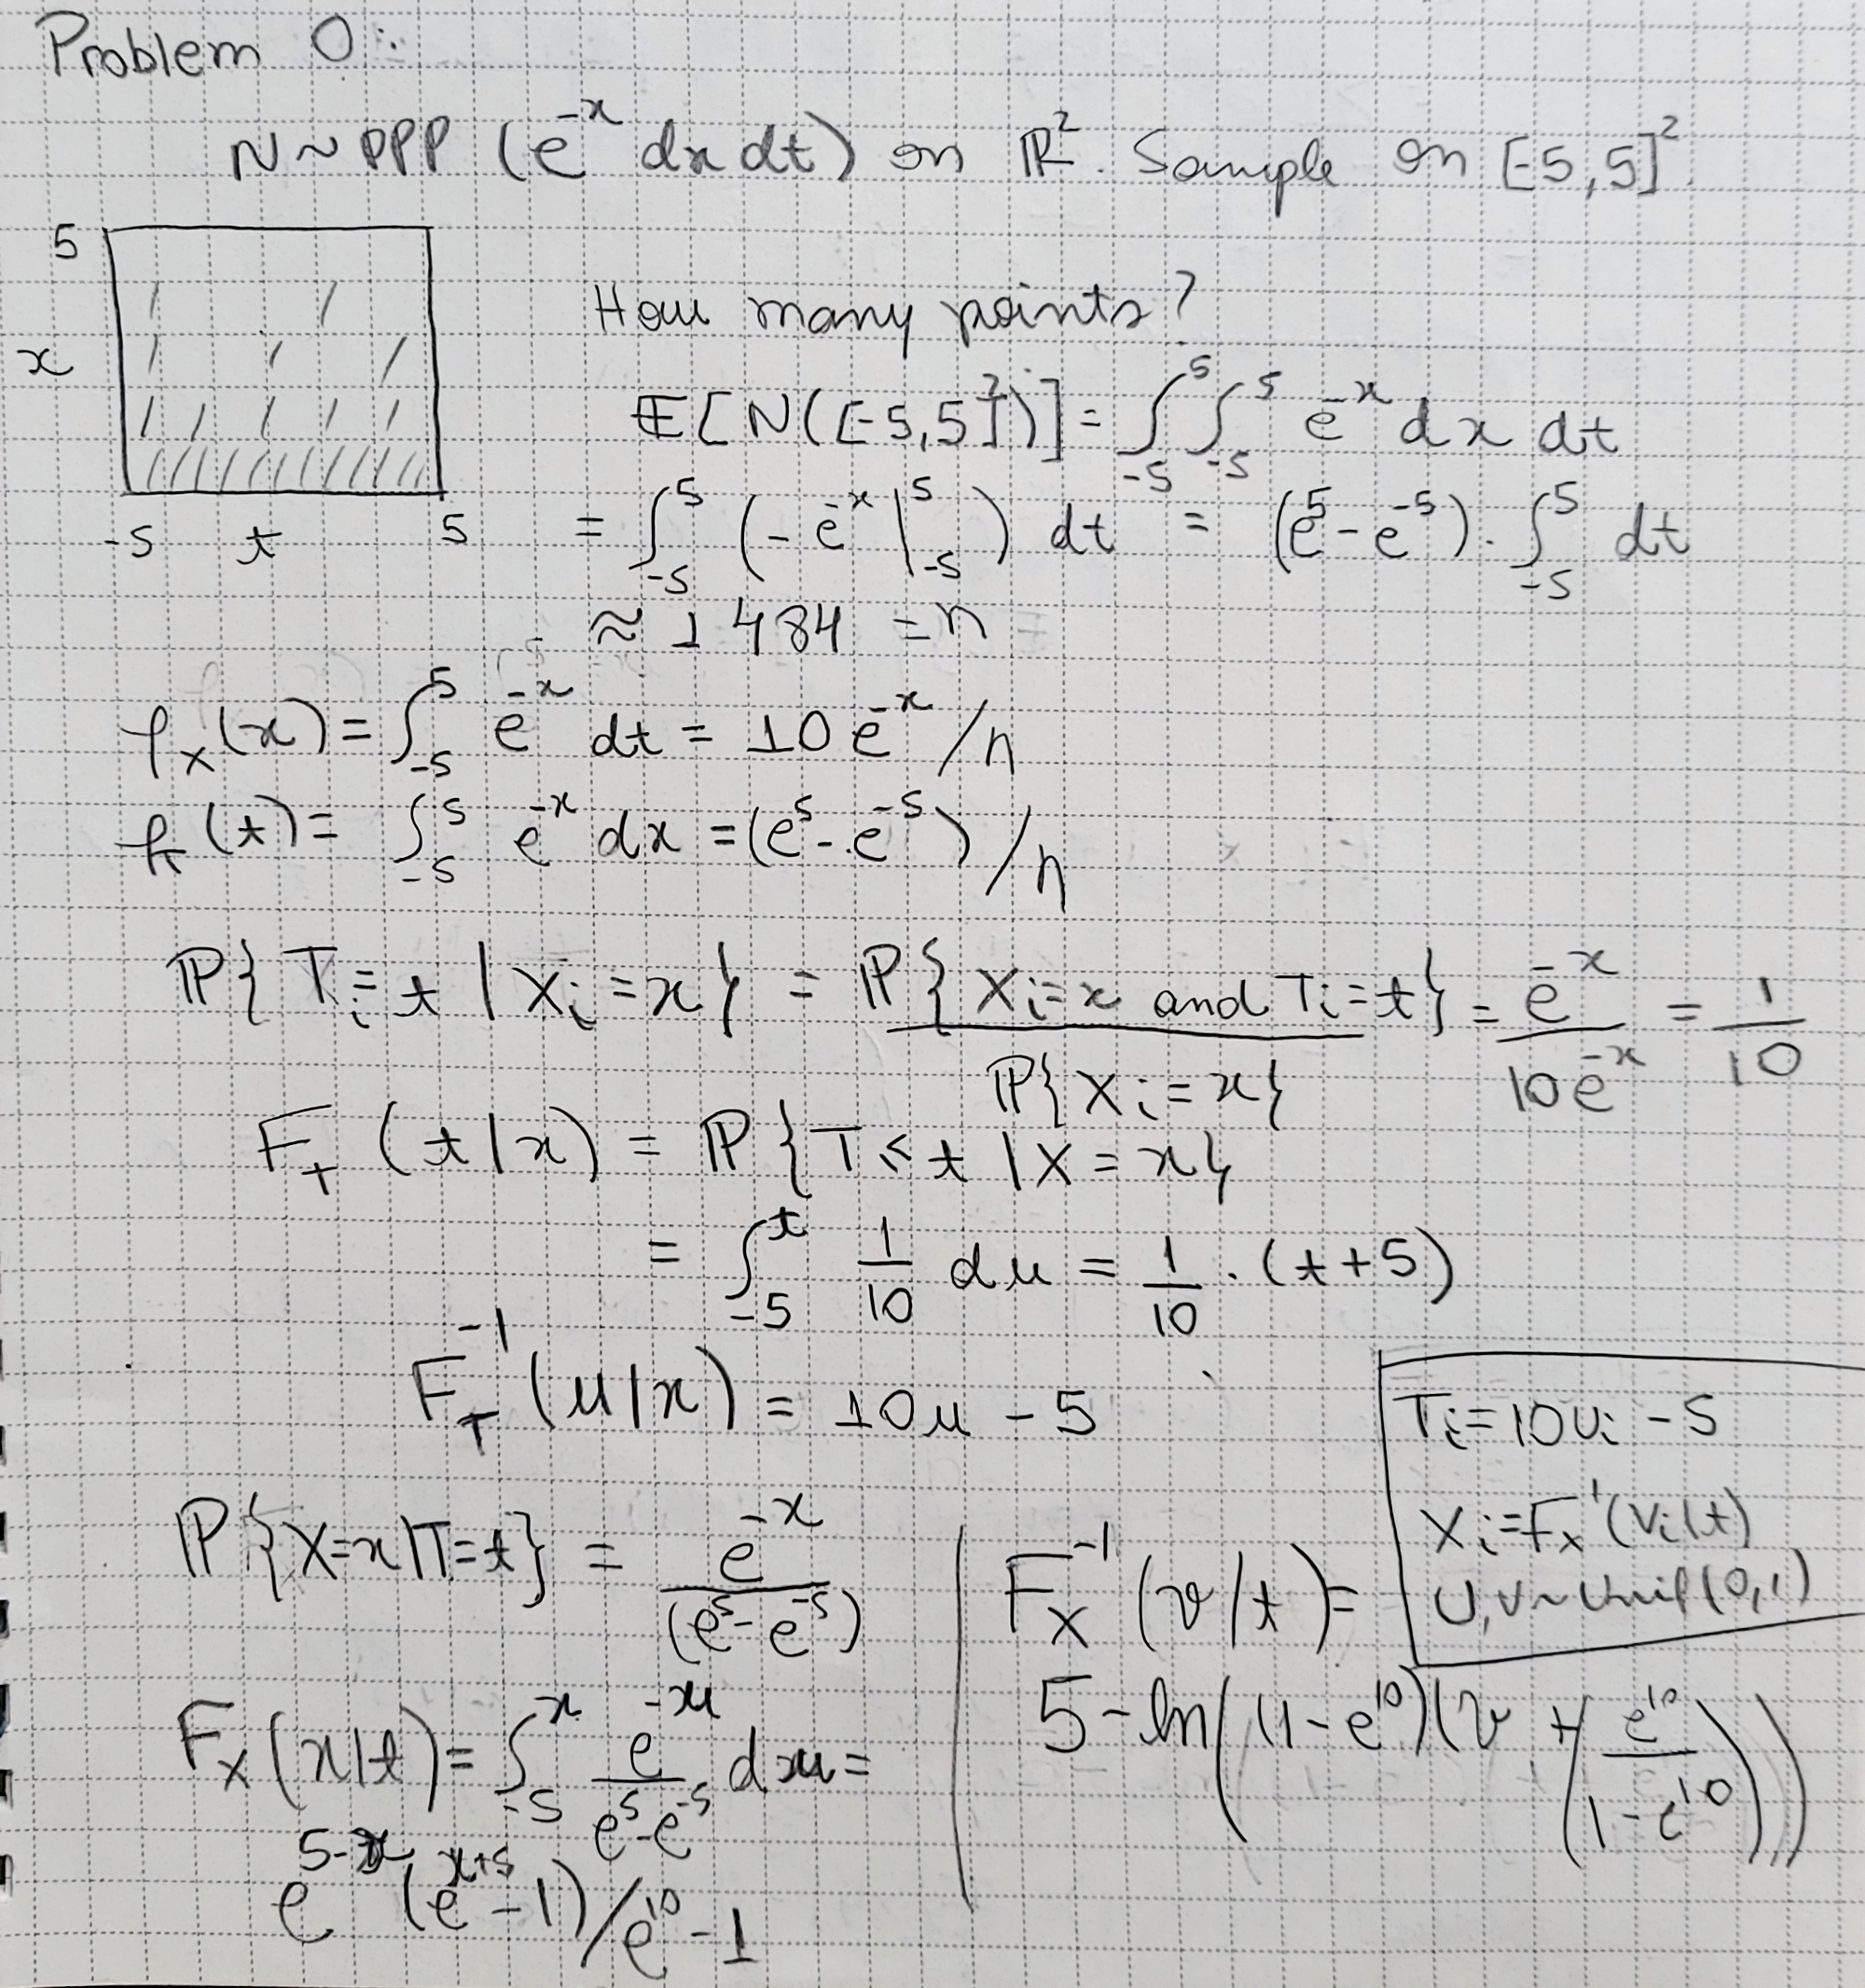 Problem 0:
N ~ PPP (e^{-x} dx dt) on ℝ². Sample on [-5,5]².
5
x
-5 t 5
How many points?
𝔼[N([-5,5]²)] = ∫_{-5}^{5} ∫_{-5}^{5} e^{-x} dx dt
= ∫_{-5}^{5} (-e^{-x} |_{-5}^{5}) dt = (e^5 - e^{-5}) · ∫_{-5}^{5} dt
≈ 1484 = n
f_X(x) = ∫_{-5}^{5} e^{-x} dt = 10 e^{-x} / n
f_T(t) = ∫_{-5}^{5} e^{-x} dx = (e^5 - e^{-5}) / n
ℙ{T_i = t | X_i = x} = ℙ{X_i = x and T_i = t} / ℙ{X_i = x} = e^{-x} / 10e^{-x} = 1/10
F_T(t|x) = ℙ{T ≤ t | X = x}
= ∫_{-5}^{t} 1/10 du = 1/10 · (t+5)
F_T^{-1}(u|x) = 10u - 5
T_i = 10U_i - 5
X_i = F_X^{-1}(V_i|t)
U,V ~ Unif(0,1)
ℙ{X=x|T=t} = e^{-x} / (e^5 - e^{-5})
F_X(x|t) = ∫_{-5}^{x} e^{-u} / (e^5 - e^{-5}) du =
e^{5-x} (e^{x+5} - 1) / e^{10} - 1
F_X^{-1}(v|t) =
5 - ln((1 - e^{10})(v + (e^{10} / (1 - e^{10}))))